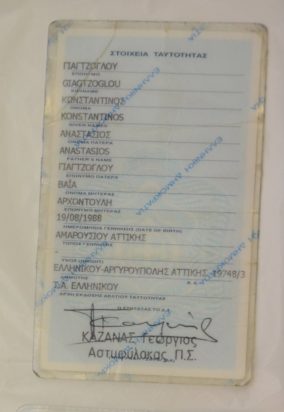 ΣΤΟΙΧΕΙΑ ΤΑΥΤΟΤΗΤΑΣ
ΓΙΑΓΤΖΟΓΛΟΥ
ΕΠΩΝΥΜΟ
GIAGTZOGLOU
SURNAME
ΚΩΝΣΤΑΝΤΙΝΟΣ
ΟΝΟΜΑ
KONSTANTINOS
GIVEN NAMES
ΑΝΑΣΤΑΣΙΟΣ
ΟΝΟΜΑ ΠΑΤΕΡΑ
ANASTASIOS
FATHER'S NAME
ΓΙΑΓΤΖΟΓΛΟΥ
ΕΠΩΝΥΜΟ ΠΑΤΕΡΑ
ΒΑΪΑ
ΟΝΟΜΑ ΜΗΤΕΡΑΣ
ΑΡΧΟΝΤΟΥΛΗ
ΕΠΩΝΥΜΟ ΜΗΤΕΡΑΣ
19/08/1988
ΗΜΕΡΟΜΗΝΙΑ ΓΕΝΝΗΣΗΣ (DATE OF BIRTH)
ΑΜΑΡΟΥΣΙΟΥ ΑΤΤΙΚΗΣ
ΤΟΠΟΣ ΓΕΝΝΗΣΗΣ
ΕΛΛΗΝΙΚΟΥ-ΑΡΓΥΡΟΥΠΟΛΗΣ ΑΤΤΙΚΗΣ 19748/3
ΔΗΜΟΤΗΣ
Τ.Α. ΕΛΛΗΝΙΚΟΥ
ΑΡΧΗ ΕΚΔΟΣΗΣ ΔΕΛΤΙΟΥ ΤΑΥΤΟΤΗΤΑΣ
ΚΑΖΑΝΑΣ Γεώργιος
Αστυφύλακας Π.Σ.